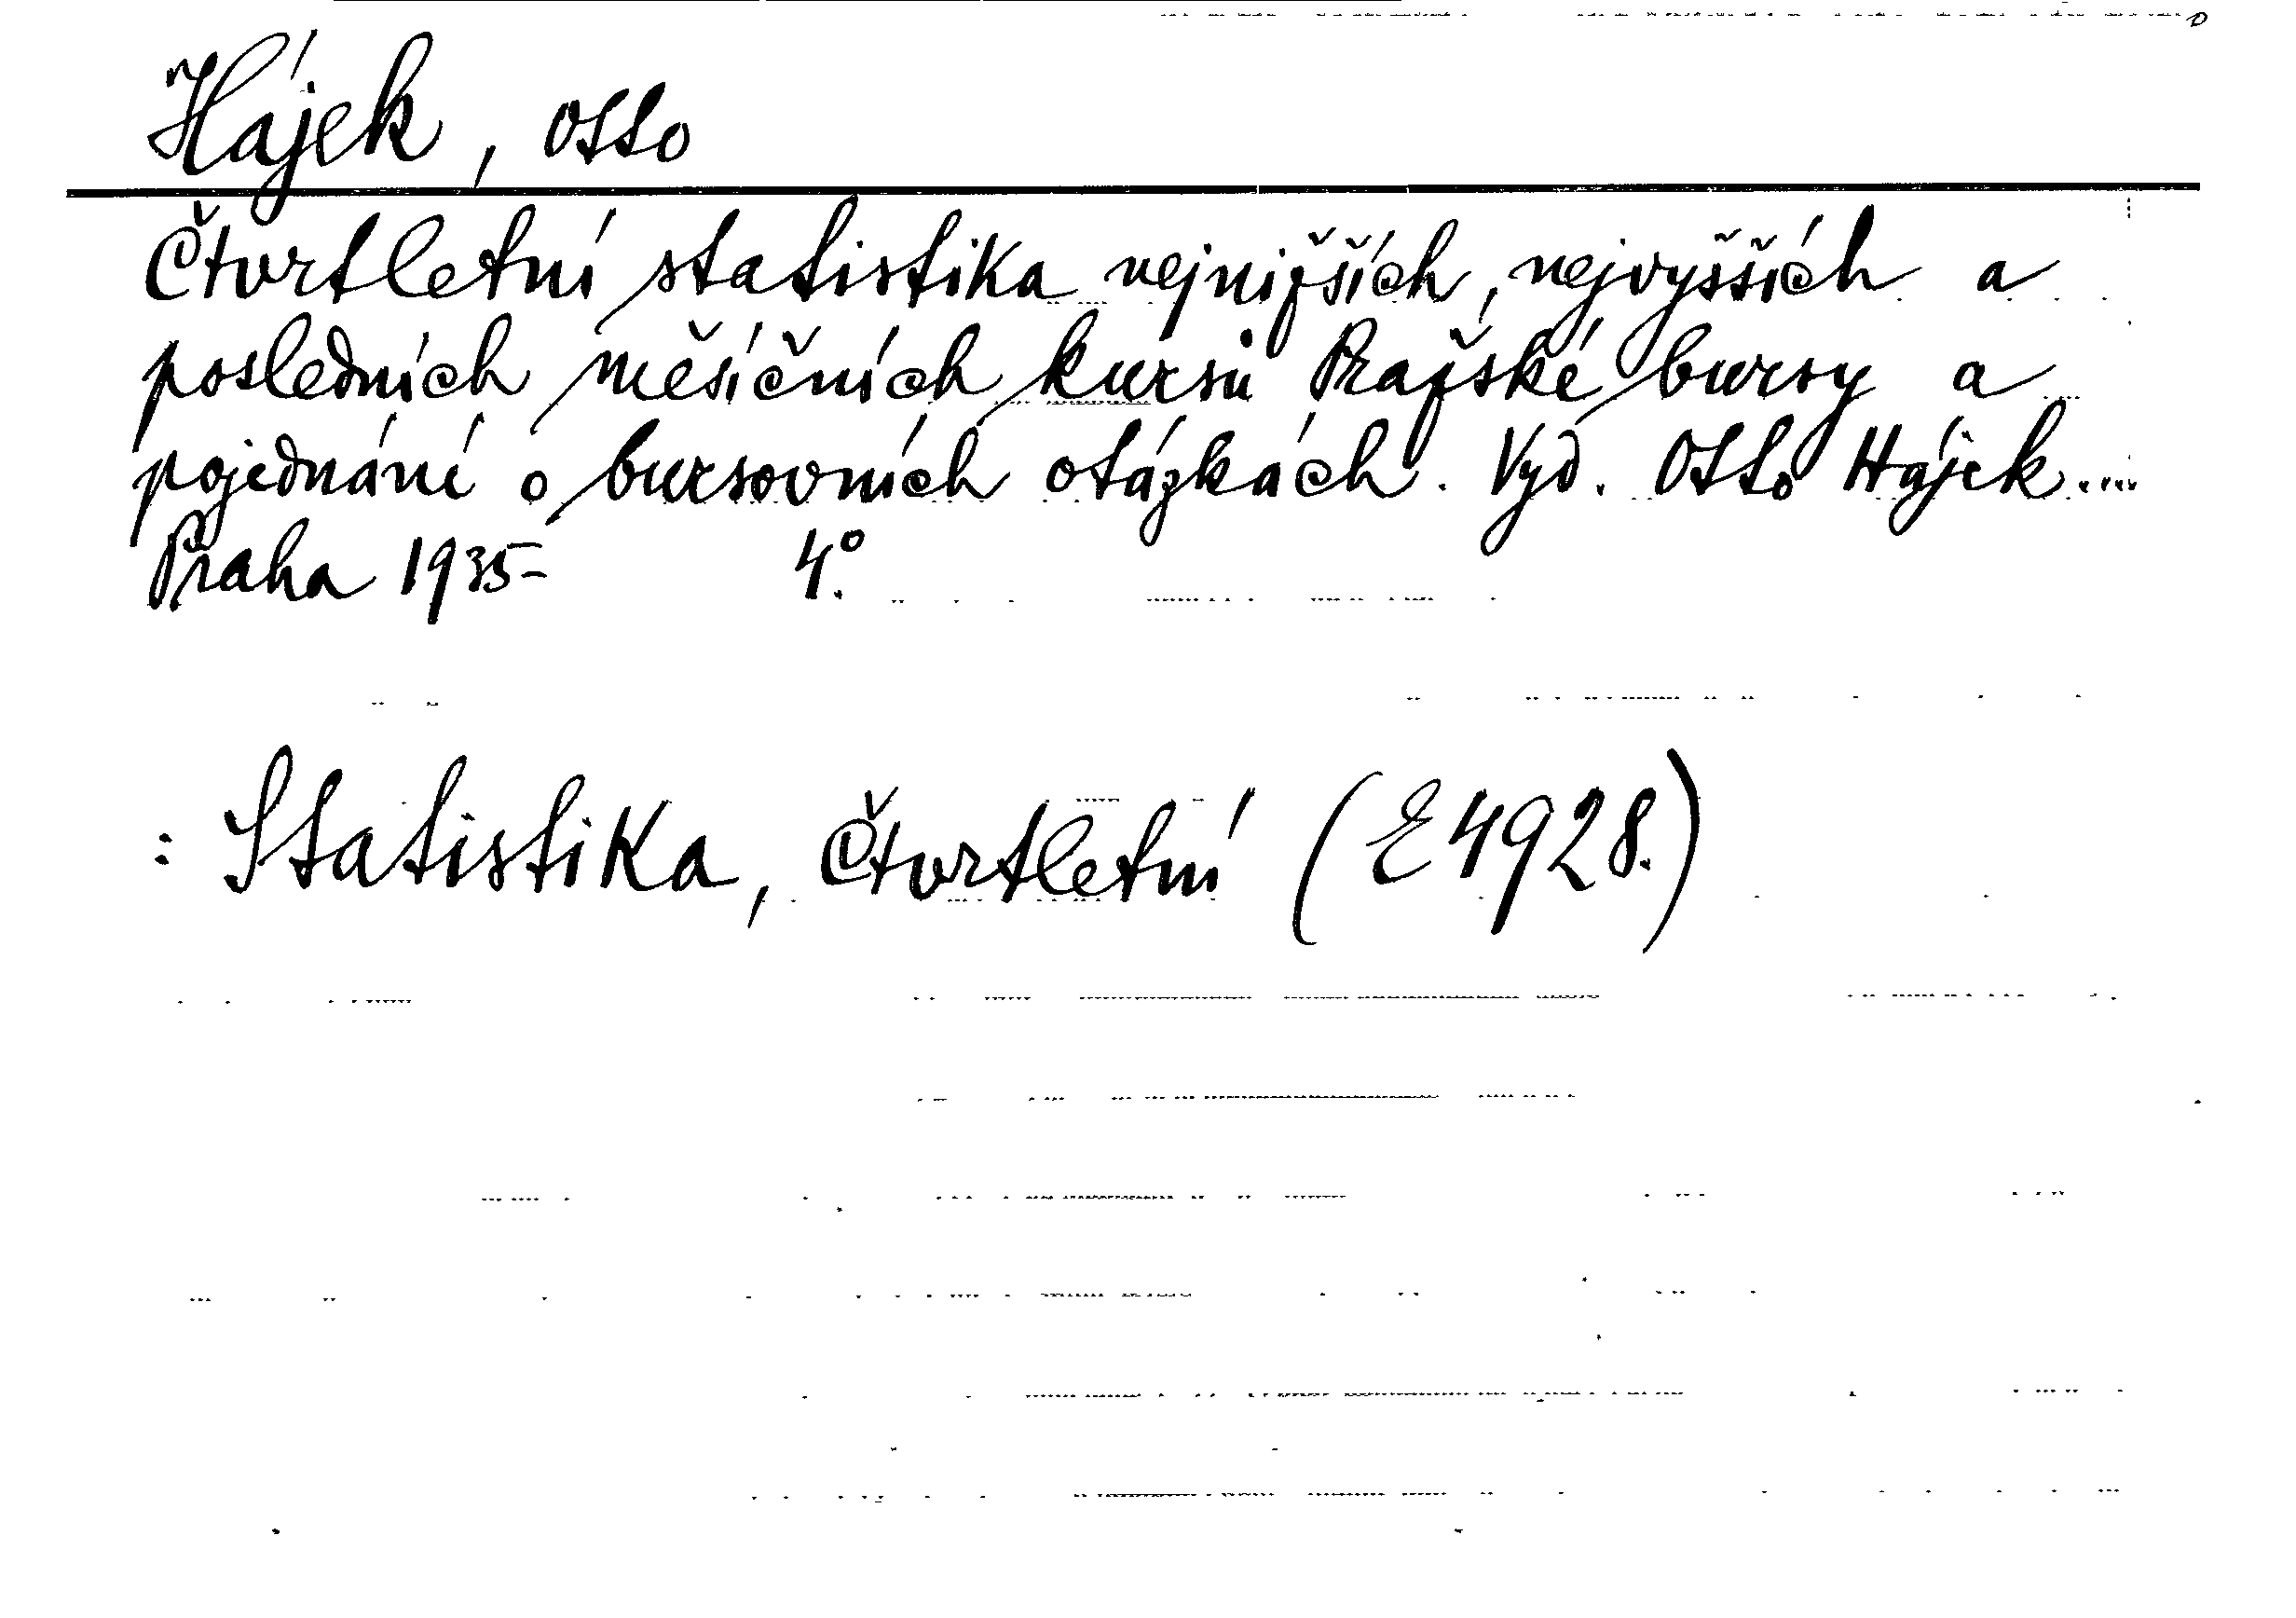 Hájek, Otto
Čtvrtletní statistika nejnižších, nejvyšších a
posledních měsíčních kursů Pražské bursy a
pojednání o bursovních otázkách. Vyd. Otto Hájek....
Praha 1935- 4°.
: Statistika, čtvrtletní (E 4928.)